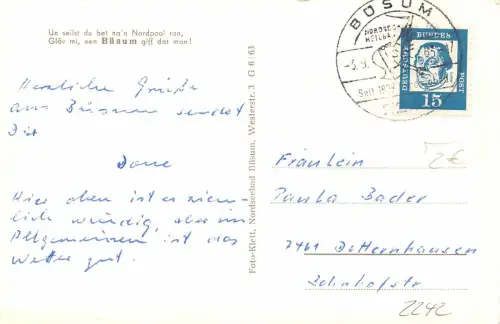 Un seilst du bet na'n Nordpool ran,
Glöv mi, een Büsum giff dat man!
Herzliche Grüße
aus Büsum sendet
Dir
Hier oben ist es ziem-
lich windig, aber im
Allgemeinen ist das
Wetter gut.
Foto-Klett, Nordseebad Büsum, Westerstr. 3 G 6/63
BÜSUM
NORDSEE-
HEILBAD
DEUTSCHE
BUNDES
POST
15
2€
Fräulein
Paula Bader
7461 Dotternhausen
Bahnhofstr.
2242